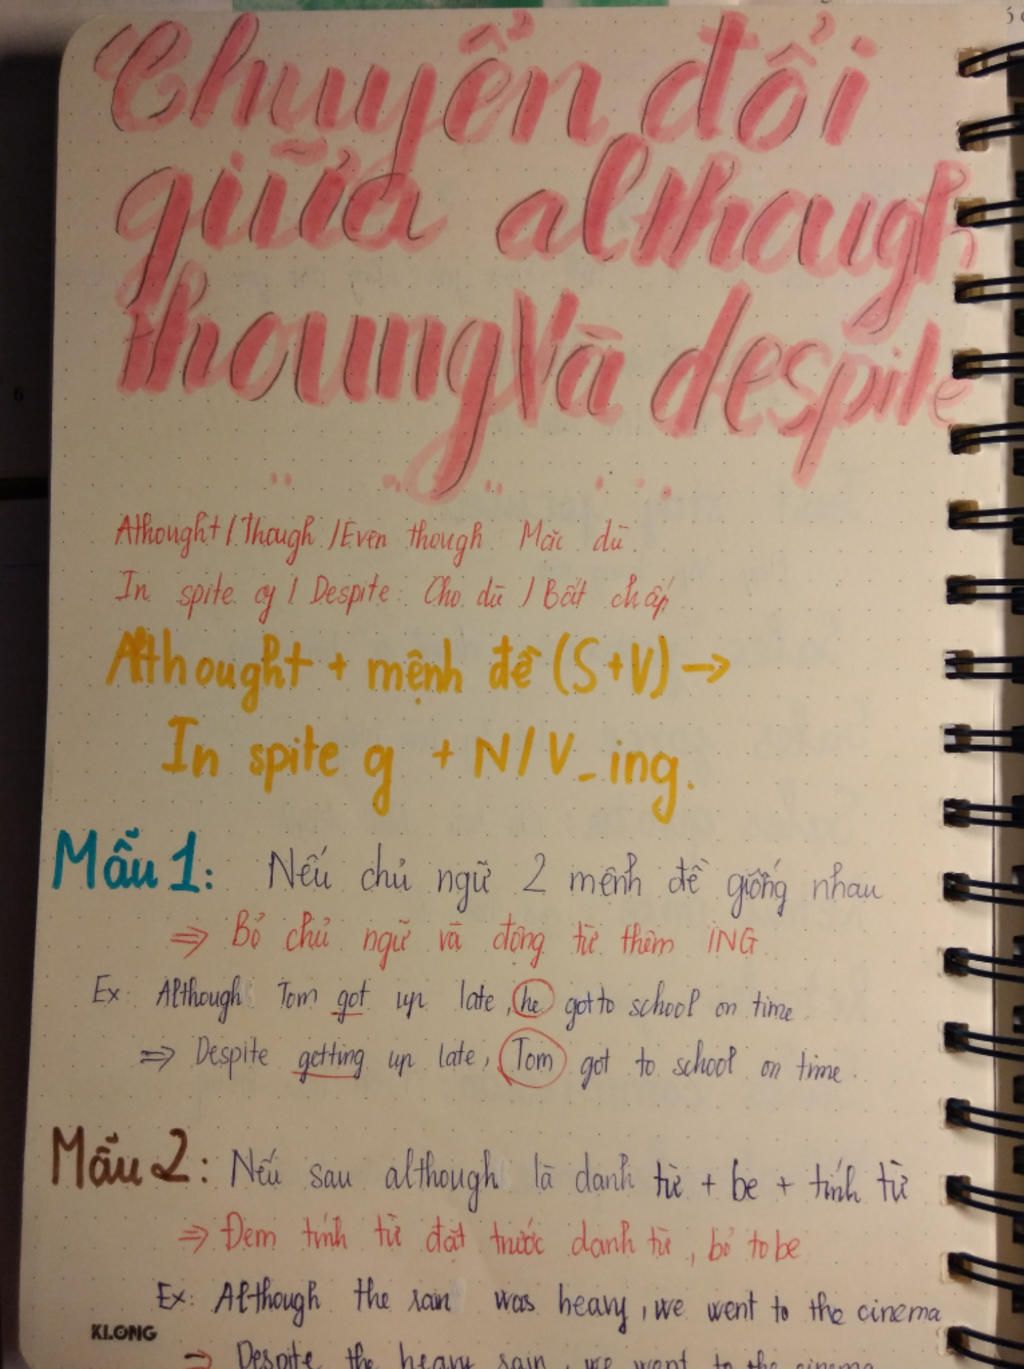 Chuyển đổi
giữa although
thoungVà despite
Athought / Though / Even though: Mặc dù.
In spite of / Despite: Cho dù / Bất chấp
Althought + mệnh đề (S+V) →
In spite of + N/V_ing.
Mẫu 1: Nếu chủ ngữ 2 mệnh đề giống nhau
⇒ Bỏ chủ ngữ và động từ thêm ING
Ex: Although Tom got up late, he got to school on time
⇒ Despite getting up late, Tom got to school on time.
Mẫu 2: Nếu sau although là danh từ + be + tính từ
⇒ Đem tính từ đặt trước danh từ, bỏ to be
Ex: Although the rain was heavy, we went to the cinema
⇒ Despite the heavy rain, we went to the cinema
KLONG